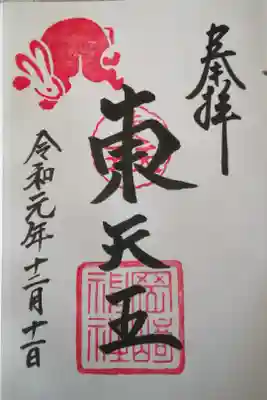 奉拝
東天王
岡崎
神社
令和元年十二月十一日